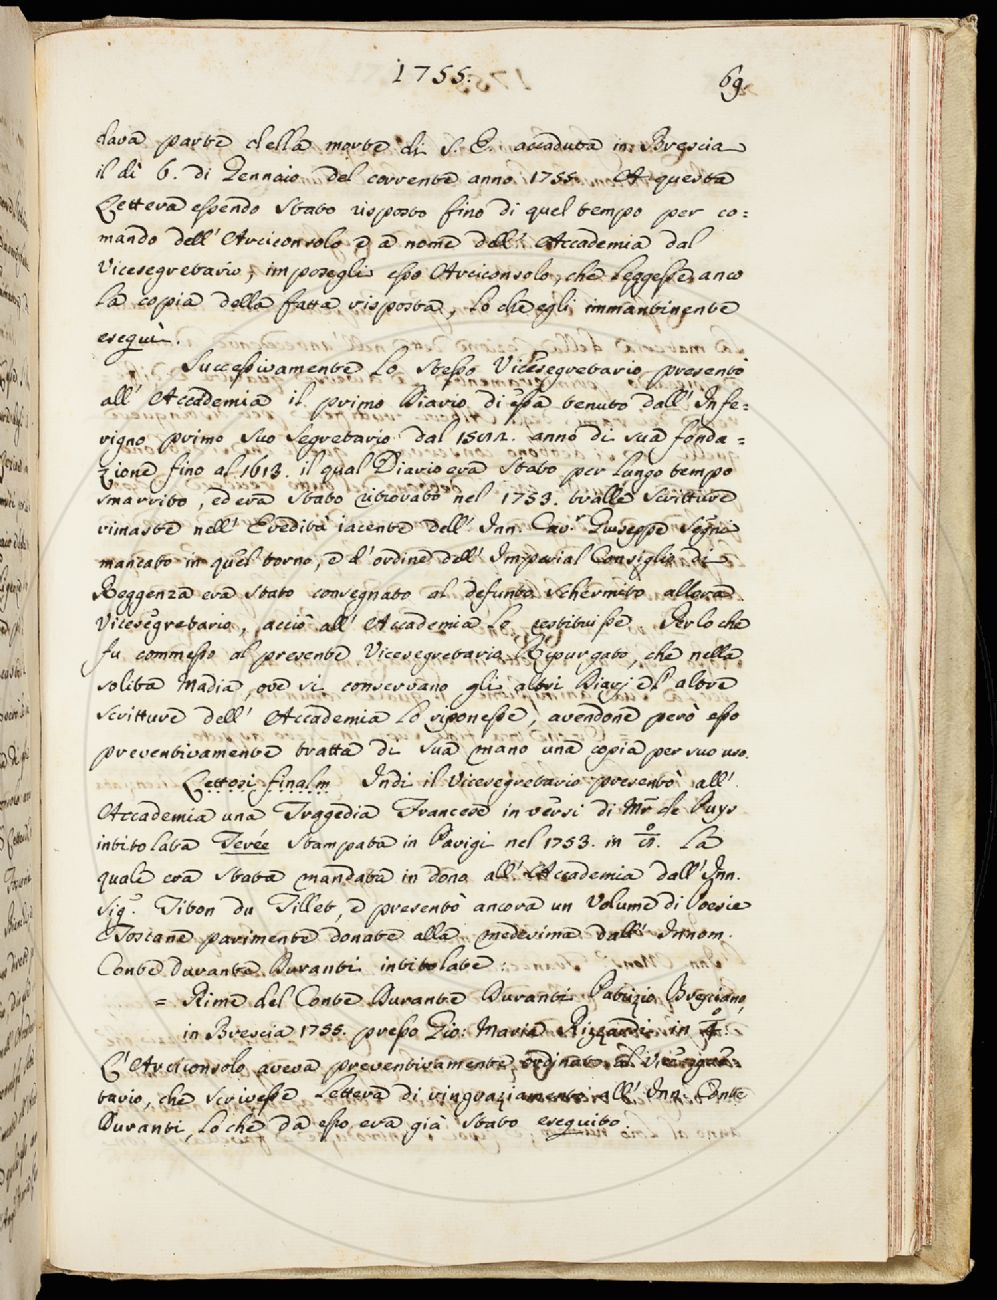 1755.
69.
dava parte della morte di S. E. accaduta in Brescia
il dì 6. di Gennaio del corrente anno 1755. A questa
Lettera essendo stato risposto fino di quel tempo per co=
mando dell' Arciconsolo e a nome dell' Accademia dal
Vicesegretario, imposegli esso Arciconsolo, che leggesse anco
la copia della fatta risposta, lo che egli immantinente
eseguì.
Successivamente lo stesso Vicesegretario presentò
all' Accademia il primo Diario di essa tenuto dall' Infe=
rigno primo suo Segretario dal anno di sua fonda=
zione fino al 1613. il qual Diario era stato per lungo tempo
smarrito, ed era stato ritrovato nel 1753. tralle Scritture
rimaste nell' Eredità iacente dell' Inn. Cav.r Giuseppe
mancato in quel torno, e d'ordine dell' Imperial Consiglio di
Reggenza era stato consegnato al defunto Schermito allora
Vicesegretario, acciò all' Accademia le restituisse. Perloche
fu commesso al presente Vicesegretario Ripurgato, che nella
solita Madia, ove si conservano gli altri Diarj e l'altre
Scritture dell' Accademia lo riponesse, avendone però esso
preventivamente tratta di sua mano una copia per suo uso.
Lettosi finalm Indi il Vicesegretario presentò all'
Accademia una Tragedia Francese in versi di Mr de Puys
intitolata Terée stampata in Parigi nel 1753. in La
quale era stata mandata in dono all' Accademia dall' Inn.
Sig.r Titon du Tillet, e presentò ancora un Volume di Poesie
Toscane parimente donate alla medesima dall' Innom.
Conte Durante Duranti intitolate:
= Rime del Conte Durante Duranti Patrizio Bresciano,
in Brescia 1755. presso Gio: Maria Rizzardi in 4.o
L'Arciconsolo aveva preventivamente ordinato al Vicesegre=
tario, che scrivesse Lettera di ringraziamento all' Inn. Conte
Duranti, lo che da esso era già stato eseguito.